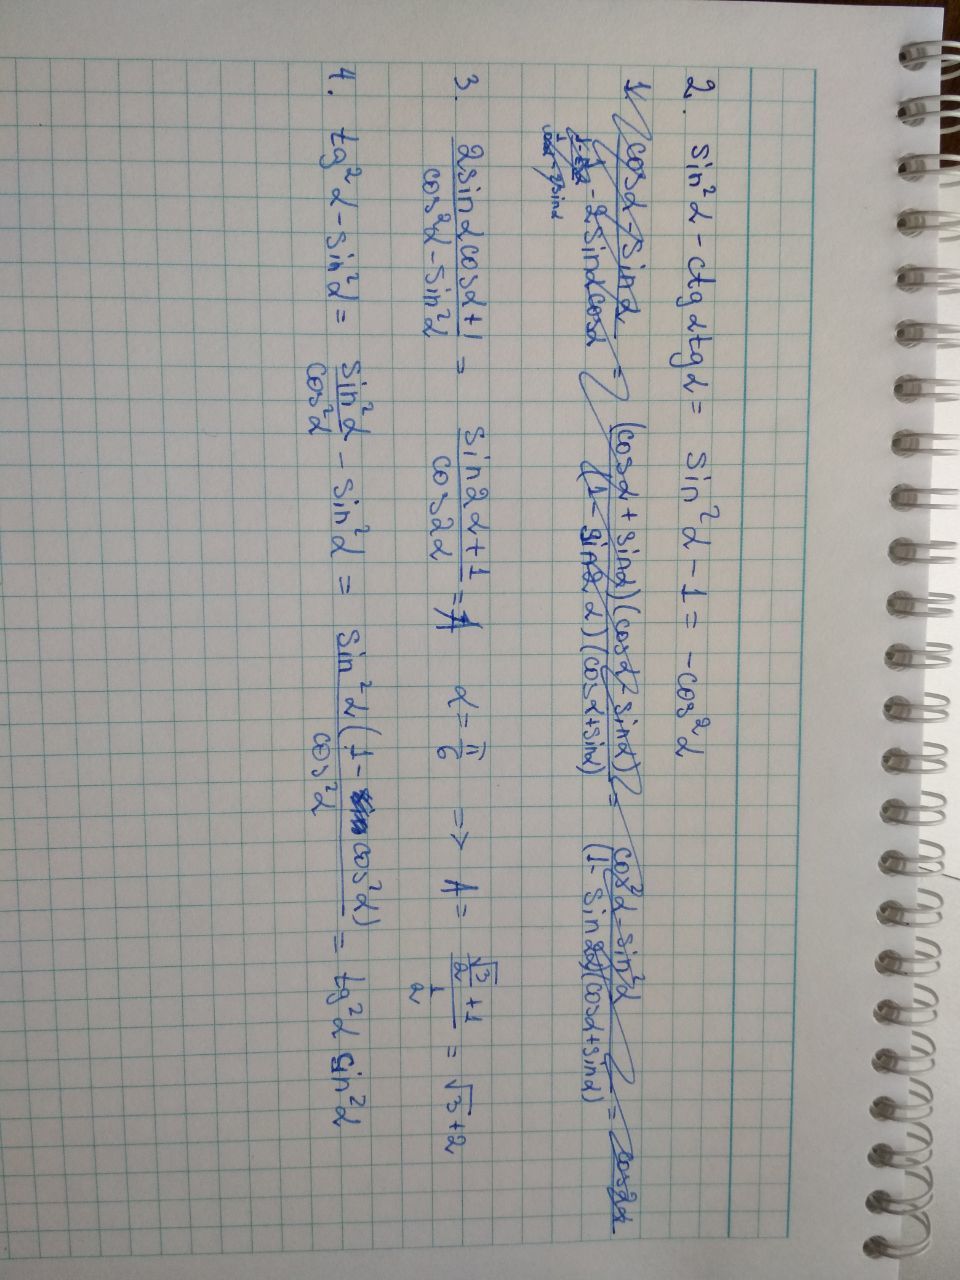 2. sin²α - ctgαtgα = sin²α - 1 = -cos²α
1. cosα - sinα / 1 - 2sinαcosα = (cosα + sinα)(cosα - sinα) / (1 - sin2α)(cosα + sinα) = cos²α - sin²α / (1 - sin2α)(cosα + sinα) = cos2α
cosα - 2sinα
3. 2sinαcosα + 1 / cos²α - sin²α = sin2α + 1 / cos2α = A α = π/6 => A = √3/2 + 1 / 1/2 = √3 + 2
4. tg²α - sin²α = sin²α / cos²α - sin²α = sin²α(1 - cos²α) / cos²α = tg²α sin²α